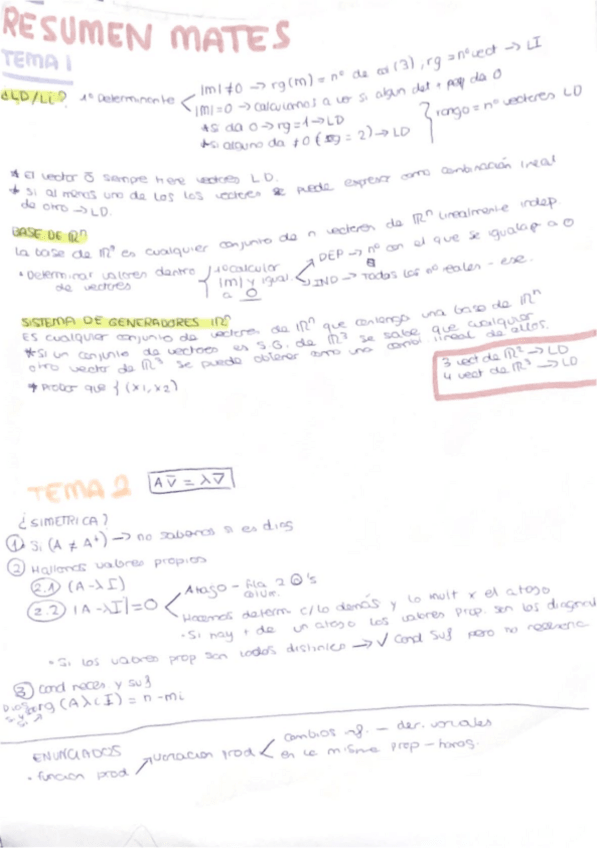 RESUMEN MATES
TEMA 1
¿LD/Li? 1º Determinante
|m| ≠ 0 → rg(m) = nº de col (3), rg = nº vect → LI
|m| = 0 → calculamos a ver si algun det + peq da 0
* Si da 0 → rg = 1 → LD
* Si alguno da ≠ 0 (rg = 2) → LD
rango ≠ nº vectores LD
* El vector 0 siempre tiene vectores LD.
* Si al menos uno de los los vectores se puede expresar como combinación lineal
de otro → LD.
BASE DE ℝⁿ
La base de ℝⁿ es cualquier conjunto de n vectores de ℝⁿ linealmente indep.
• Determinar valores dentro
de vectores
1º calcular
|m| y igual.
a 0
DEP → nº con el que se igualap a 0
IND → Todos los nº reales - ese.
SISTEMA DE GENERADORES ℝⁿ
Es cualquier conjunto de vectores de ℝⁿ que contenga una base de ℝⁿ
* Si un conjunto de vectores es S.G. de ℝ³ se sabe que cualquier
otro vector de ℝ³ se puede obtener como una comb. lineal de ellos.
* Probar que { (x1, x2)
3 vect de ℝ² → LD
4 vect de ℝ³ → LD
TEMA 2
AV̄ = λV̄
¿SIMETRICA?
① Si (A ≠ Aᵗ) → no sabemos si es diag
② Hallamos valores propios
2.1 (A - λI)
2.2 |A - λI| = 0
Atajo - fila 2 0's
colum.
Hacemos determ c/lo demás y lo mult x el atajo
• Si hay + de un atajo los valores prop. son los diagonal
• Si los valores prop son todos distintos → ✓ Cond Suf pero no necesaria
③ cond neces y suf
rg (A λi I) = n - mi
ENUNCIADOS
• función prod
variación prod
cambios - der.
en la misma prop -